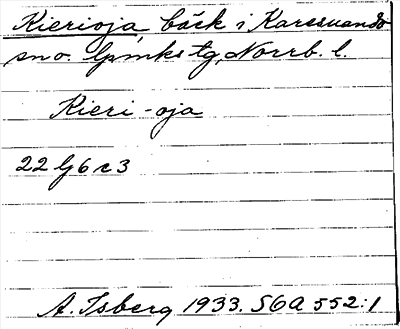 Kierioja, bäck i Karesuando
sno. lpmkstg, Norrb. l.
Kieri-oja
22 lj 6 c 3
A. Isberg 1933. S6A 552:1